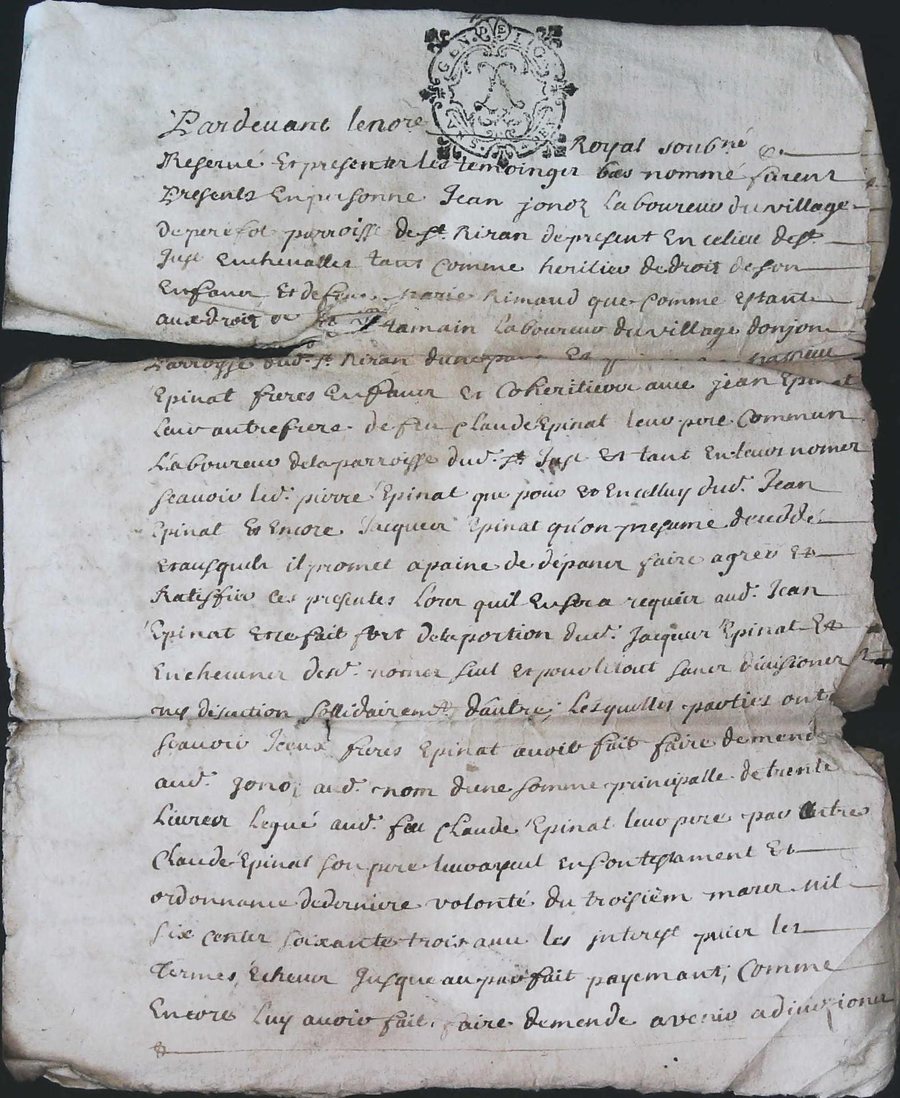 GEN. DE LION
Pardevant lenore
Royal soubné
Reservé Et presenter les temoinger bas nommé furent
Presents En personne Jean jonoz Laboureur du village
De perefol parroisse de st. Riran de present En ce lieu de st
Just Enchevallet tant comme heritier de droit de son
Enfance Et de feue Marie Rimaud que comme Estant
aux droit de tamain Laboureur du village donjon
Parroysse dud. st. Riran dune part Et
Epinat freres Enfancer Et Coheritieer avec jean Epinat
Leur autre frere de feu Claude Epinat leur pere Commun
Laboureur de la parroisse dud. st. Just Et tant En leurs nomer
scavoir led. pierre Epinat que pour Et En celluy dud. Jean
Epinat Et Encore Jacquer Epinat qu'on presume decedde
Et ausquels il promet a paine de dépancer faire agreer Et
Ratiffier ces presentes Lorer quil En sera requier aud. Jean
Epinat Et se fait fort de la portion dud. Jacquer Epinat Et
En chacuner desd. nomer seul Et pour le tout sancer divisioner
ny discution sollidairemt. d'autre; Lesquelles parties ont
scavoir Iceux freres Epinat avoir fait faire demende
aud. jonoz aud. nom d'une somme principalle de trente
Livrer Legué aud. feu Claude Epinat leur pere par autre
Claude Epinat son pere leur ayeul En son testament Et
ordonnance de derniere volonté du troisiem marer Mil
six center soixante trois avec les interest puier les
termes Echeuer Jusque au parfait payemant; Comme
Encore Luy avoir fait faire demende a venir a divizioner